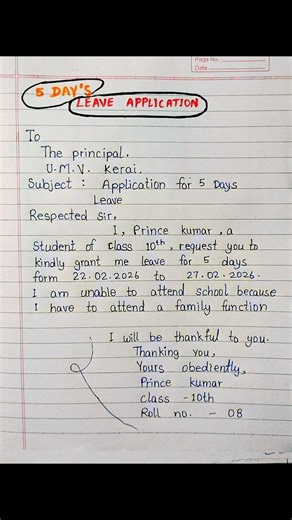 Page No.
Date
5 DAY'S
LEAVE APPLICATION
To
The principal.
U.M.V. Kerai.
Subject : Application for 5 Days
Leave
Respected Sir,
I, Prince kumar, a
Student of class 10th, request you to
kindly grant me leave for 5 days
form 22.02.2026 to 27.02.2026.
I am unable to attend school because
I have to attend a family function
I will be thankful to you.
Thanking you,
Yours obediently,
Prince kumar
class - 10th
Roll no. - 08